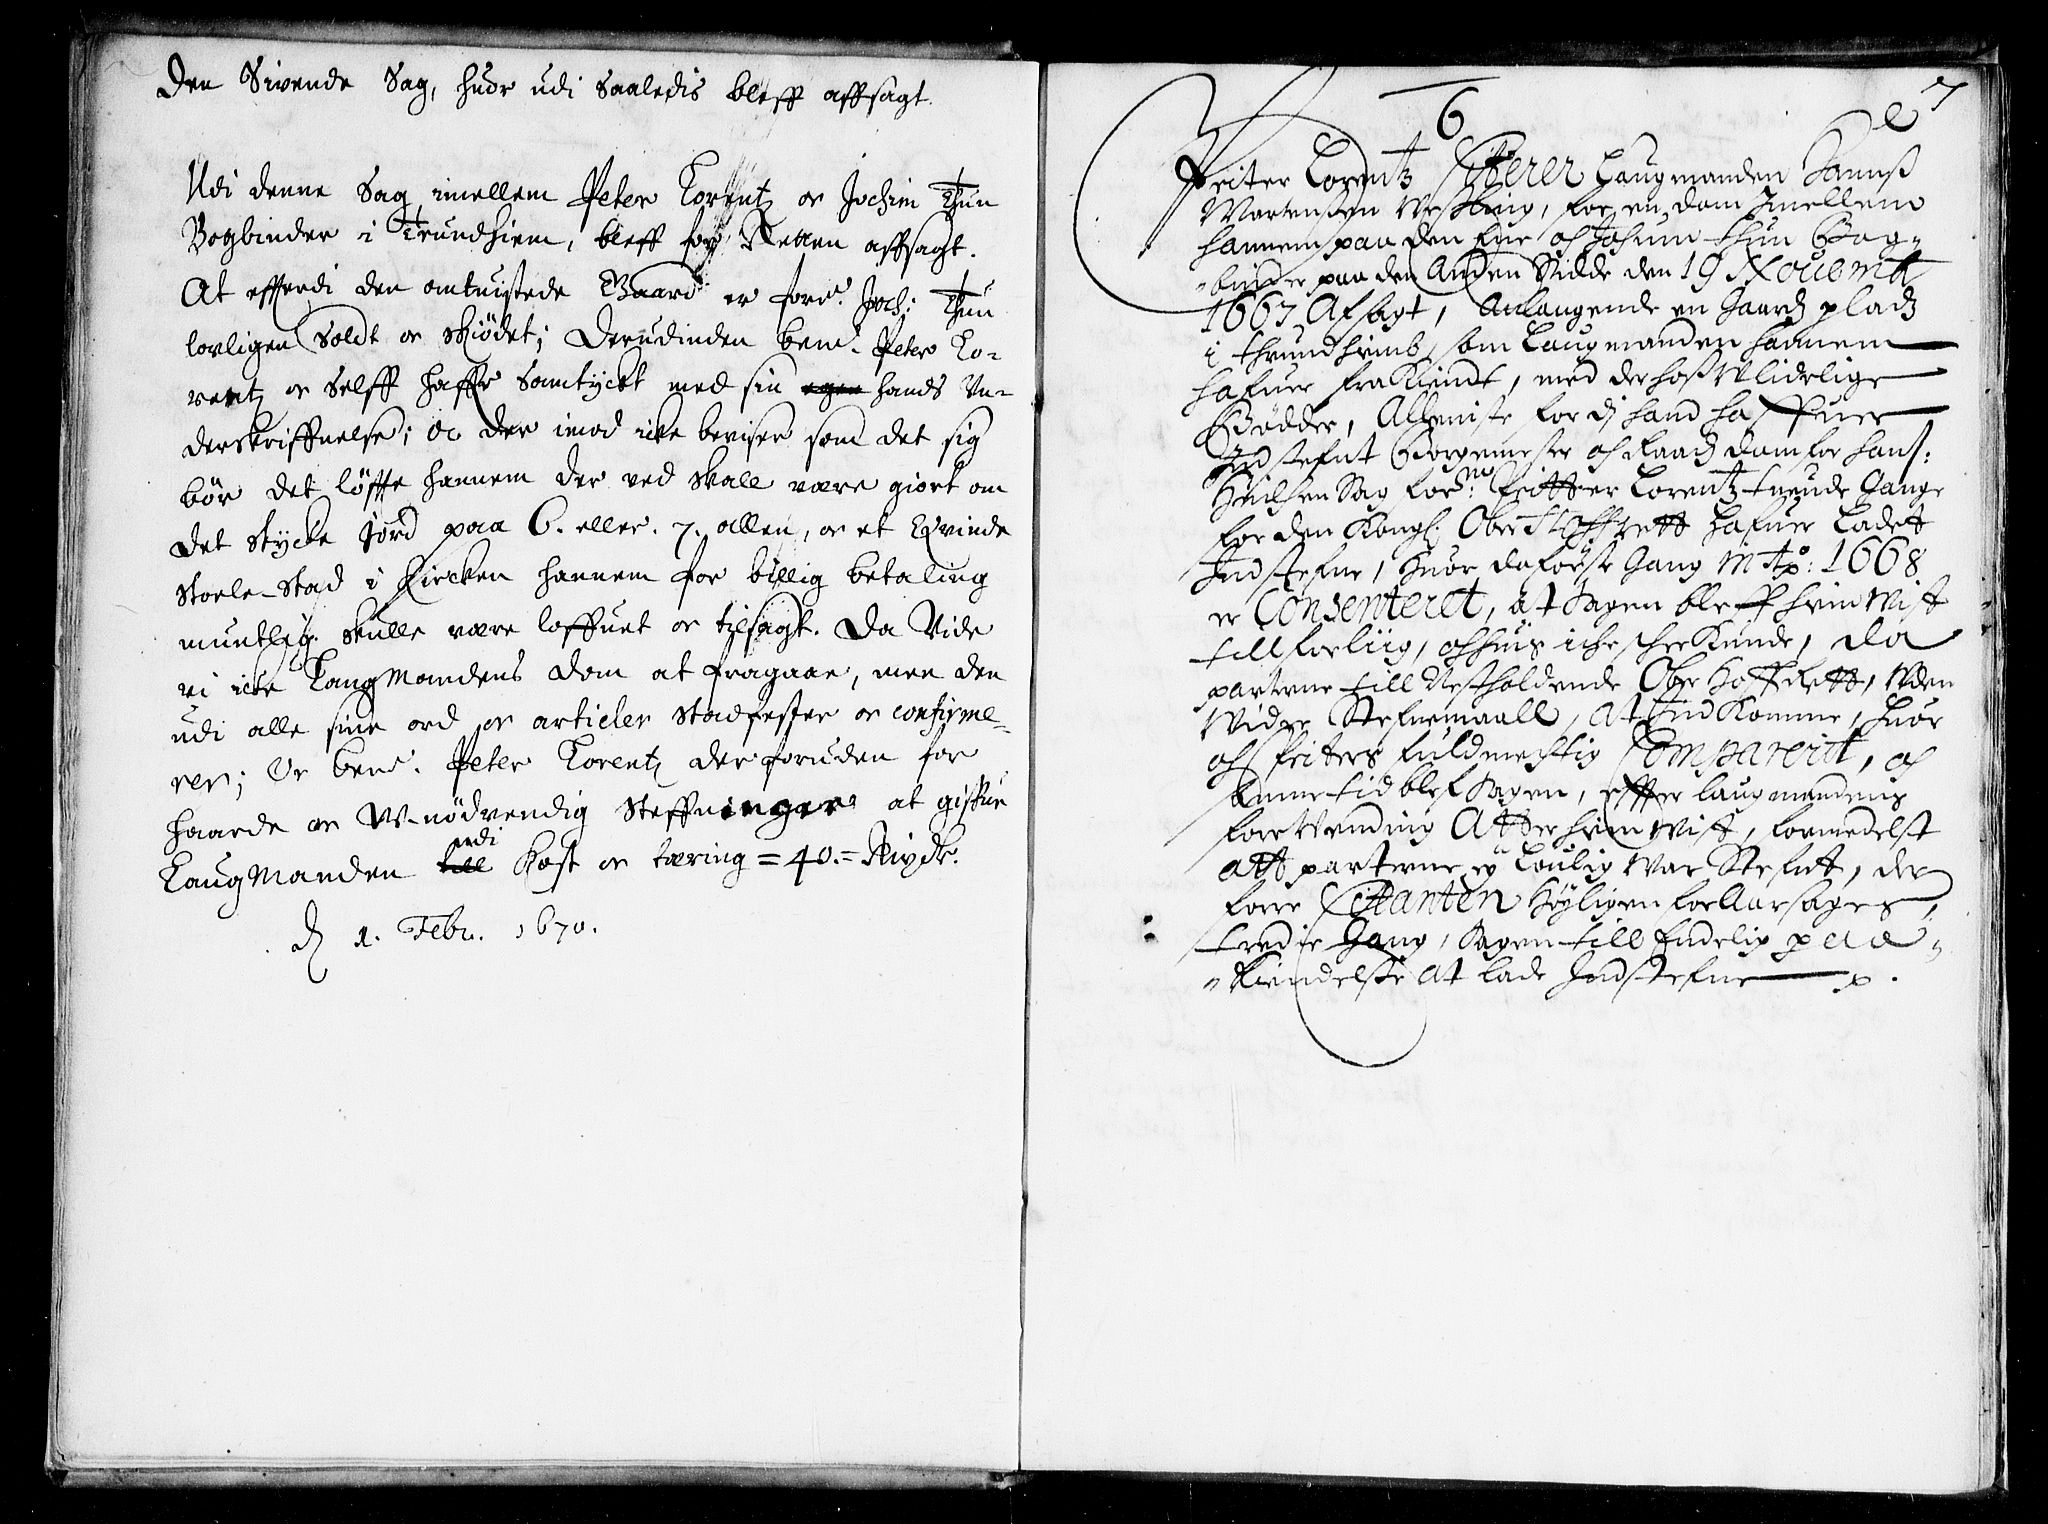 Den Sivende Sag, huor udi Saaledis bleff affsagt.
Udi denne Sag imellem Peter Lorentz oc Jochim Thun
Bogbinder i Trundhiem, bleff for Retten affsagt.
At effterdi den omtuistede Gaard er forne. Joch: Thun
lovligen Soldt oc Skiödet; Derudinden bemte. Peter Lo-
rentz oc Selff haffr Samtyckt med sin egen hands Un-
derskriffuelse; oc der imod icke beviser som det sig
bör det löffte hannem der ved skall være giort om
det stycke Jord paa 6. eller. 7. allen, oc et Qvinde
Stoele-Stad i Kircken hannem for billig betaling
muntlig. skulle være loffuet oc tilsagt. Da Vide
vi icke LaugMandens Dom at fragaae, men den
udi alle sine ord oc articler Stadfester oc confirme-
rer; Oc bemte. Peter Lorentz der foruden for
haarde oc W-nödvendig Steffninger at gifue
udi
LaugManden till Kost oc tæring = 40. = Rixdlr.
D 1. Febr. 1670.
7
6
Peiter Lorentz Citerer Laugmanden Hannß
Mortensen Wesling, for en dom Imellem
hannem paa den Ene och Jochum thun Bog-
binder paa den Anden Sidde den 19 Nouemb
1667 Afsagt, Anlangende en Gaardz pladtz
i thrundhiemb, som Laugmanden hannem
hafuer frakiendt, med der hoß Ulidelige
Bödder, Alleniste fordj hand haffuer
Indstefnt Borgemester och Raadz dom for hans:
Huilchen Sag forne: Peitter Lorentz tuende Gange
for den Kongl: Ober Hoffrett hafuer Ladet
Indstefne, Huor da förste Gang Mtp: 1668
er Consenteret, at Sagen bleff hiemwist
till forliig, och huis iche schee Kunde, da
parterne till Nestholdende Ober Hoffrett, Uden
Wider Stefnemaall, at Ind Komme, Huor
och Peiters fuldmechtig Compareret, och
samme tid blef Sagen, effter laugmandens
forre Wending Atter hiemwist, formedelst
att parterne ey Loulig War Stefnet, der
forre Citanten Höyligen forAarsages,
tredie Gang, Sagen till Endelig paa-
Kiendelße at lade Indstefne